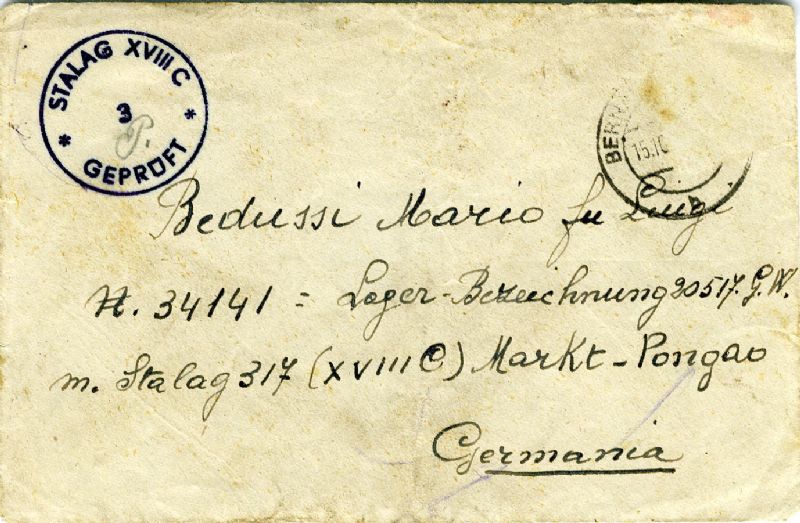 STALAG XVIII C
3
P.
* GEPRÜFT *
BERN
15.10
Bedussi Mario fu Luigi
N. 34141 = Lager-Bezeichnung 20517. G.W.
m. Stalag 317 (XVIII C) Markt-Pongao
Germania